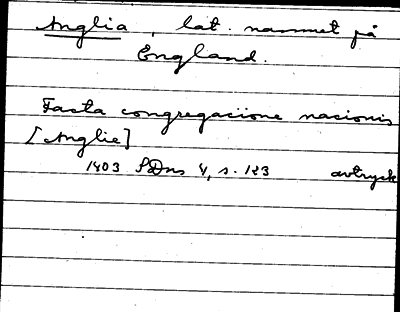 Anglia, lat. namnet på
England.
Facta congregacione nacionis
[Anglie]
1403 SDns 4, s. 123 avtryck